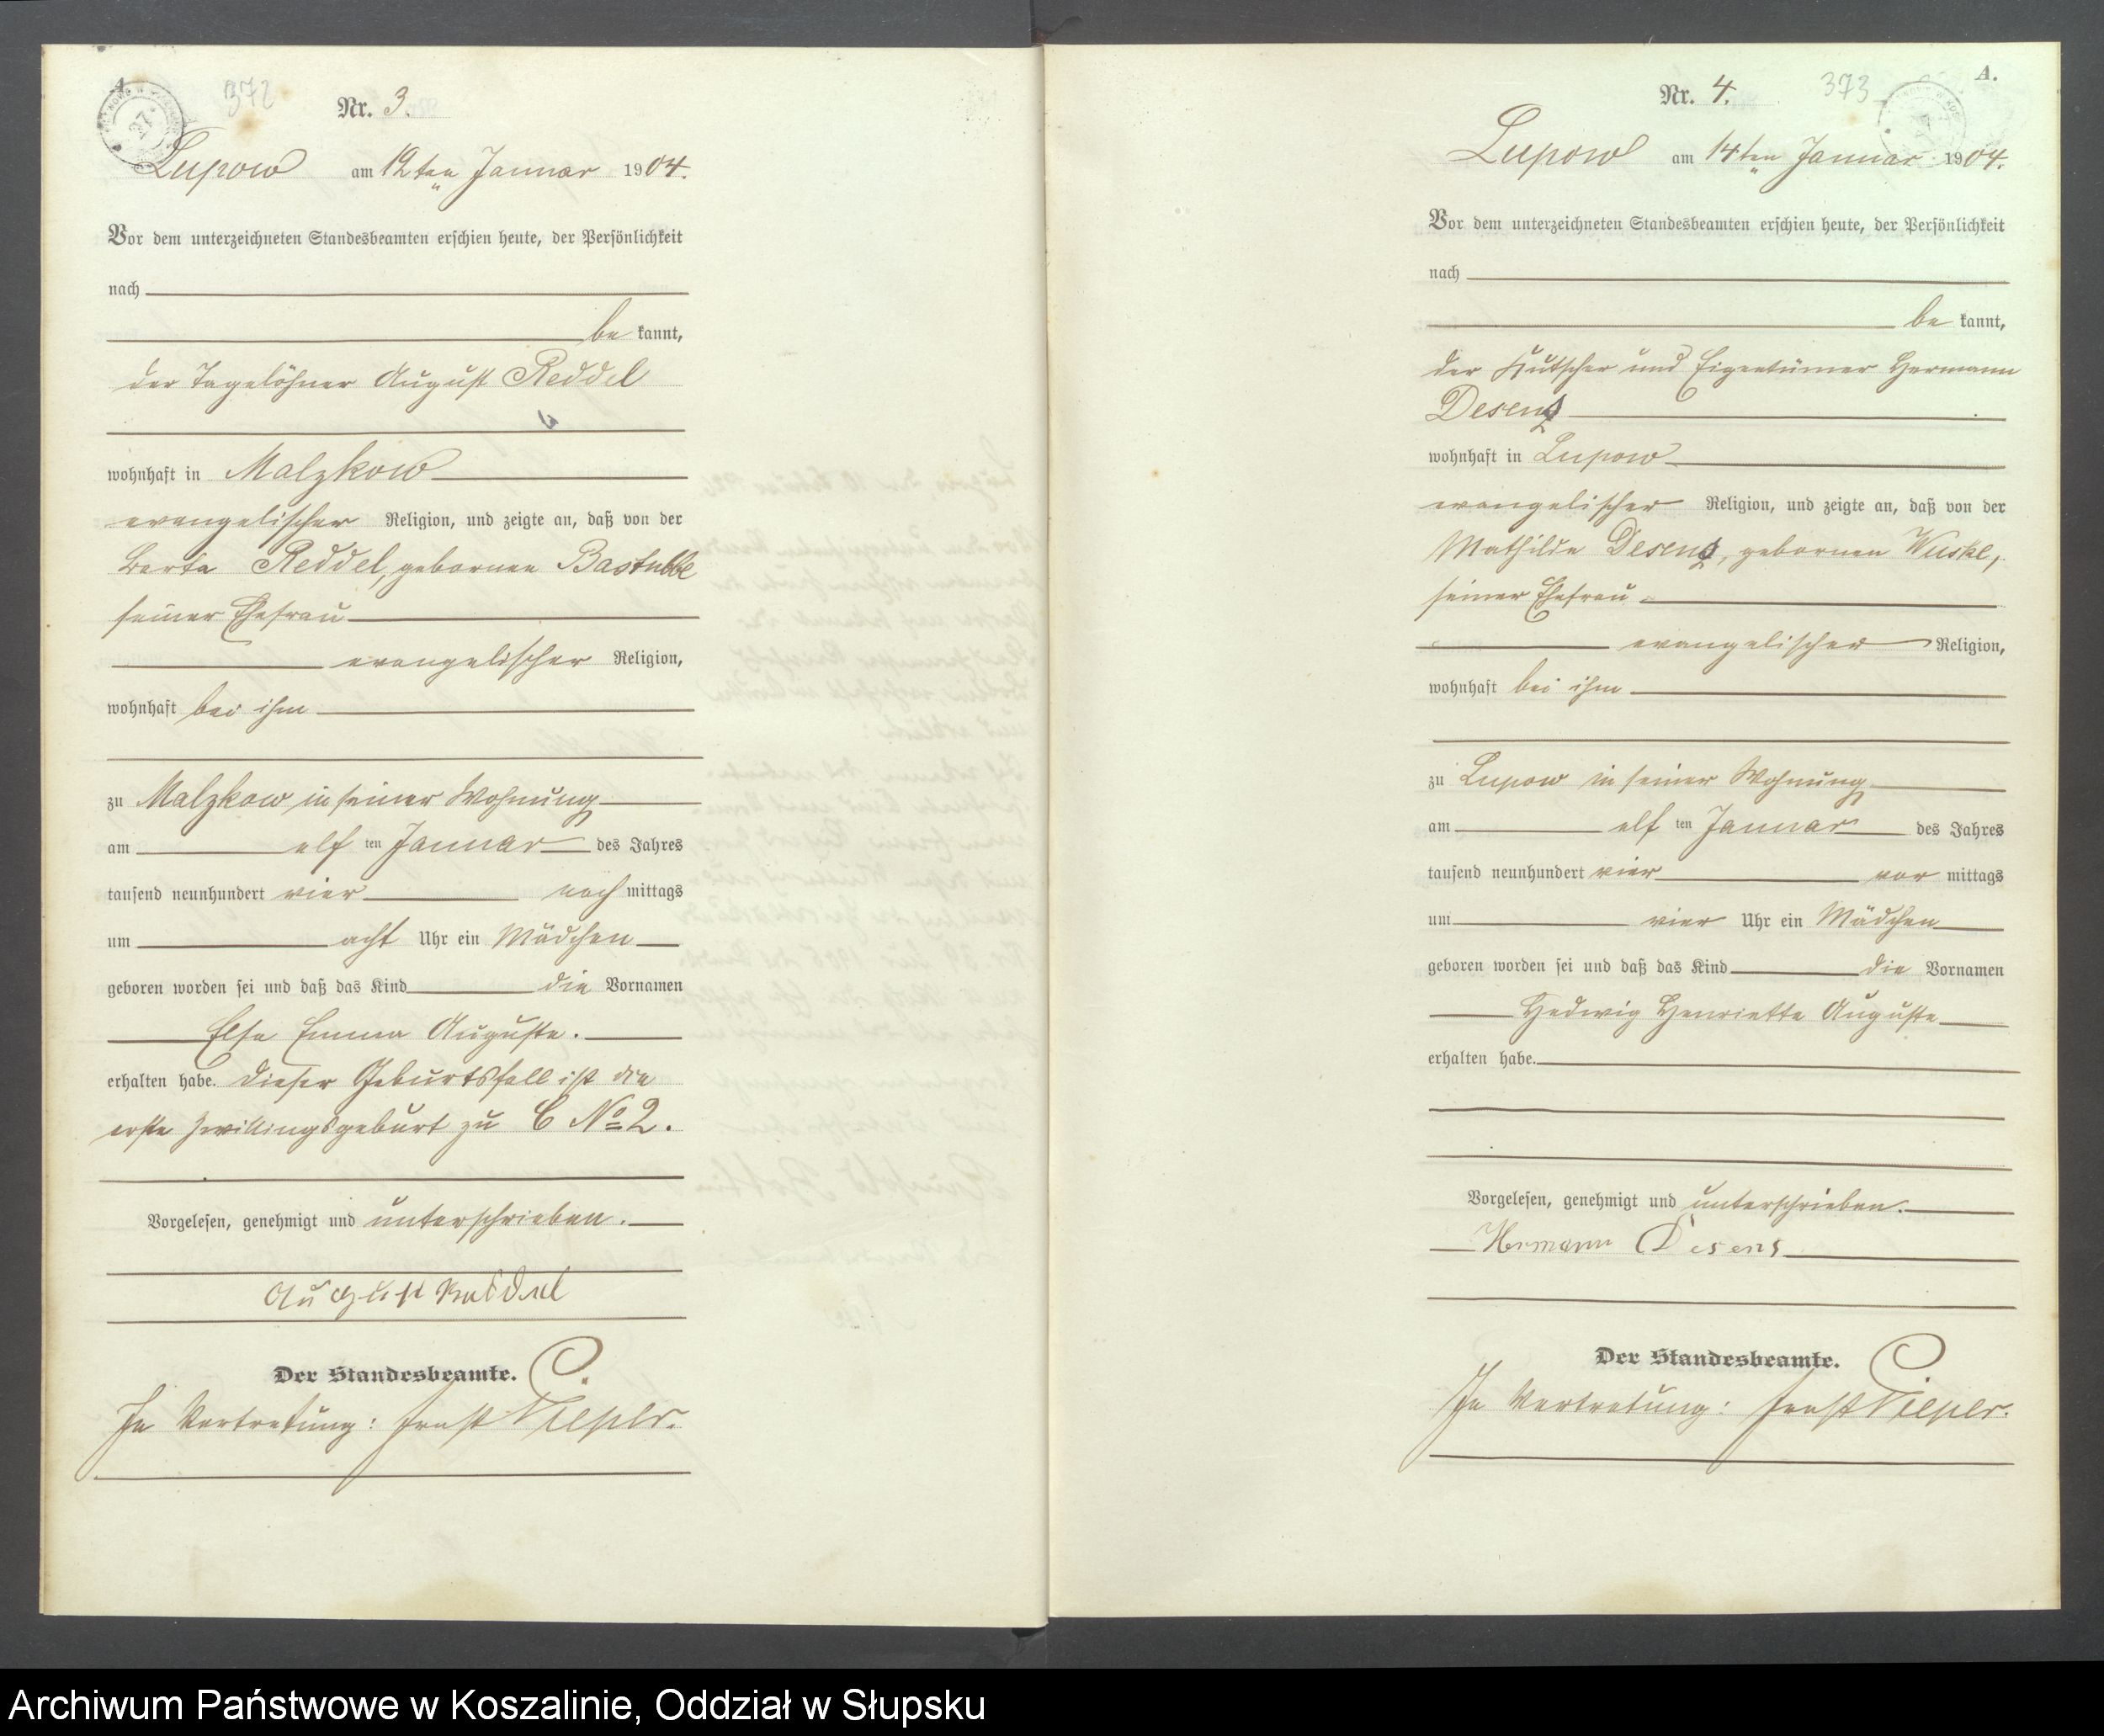 A.
372
Nr. 3.
Lupow am 12ten Januar 1904.
Vor dem unterzeichneten Standesbeamten erschien heute, der Persönlichkeit
nach
be kannt,
der Tagelöhner August Reddel
wohnhaft in Malzkow
evangelischer Religion, und zeigte an, daß von der
Berta Reddel, geborenen Bastubbe
seiner Ehefrau
evangelischer Religion,
wohnhaft bei ihm
zu Malzkow in seiner Wohnung
am elf ten Januar des Jahres
tausend neunhundert vier nach mittags
um acht Uhr ein Mädchen
geboren worden sei und daß das Kind die Vornamen
Else Emma Auguste.
erhalten habe. Dieser Geburtsfall ist die
erste Zwillingsgeburt zu C No 2.
Vorgelesen, genehmigt und unterschrieben.
August Reddel
Der Standesbeamte.
In Vertretung: Ernst Piepler.
A.
373
Nr. 4.
Lupow am 14ten Januar 1904.
Vor dem unterzeichneten Standesbeamten erschien heute, der Persönlichkeit
nach
be kannt,
der Kutscher und Eigentümer Hermann
Desens
wohnhaft in Lupow
evangelischer Religion, und zeigte an, daß von der
Mathilde Desens, geborenen Wuske,
seiner Ehefrau
evangelischer Religion,
wohnhaft bei ihm
zu Lupow in seiner Wohnung
am elf ten Januar des Jahres
tausend neunhundert vier vor mittags
um vier Uhr ein Mädchen
geboren worden sei und daß das Kind die Vornamen
Hedwig Henriette Auguste
erhalten habe.
Vorgelesen, genehmigt und unterschrieben.
Hermann Desens
Der Standesbeamte.
In Vertretung: Ernst Piepler.
Archiwum Państwowe w Koszalinie, Oddział w Słupsku